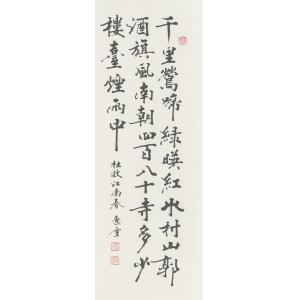 千里鶯啼綠暎紅水村山郭
酒旗風南朝四百八十寺多少
樓臺煙雨中
杜牧江南春